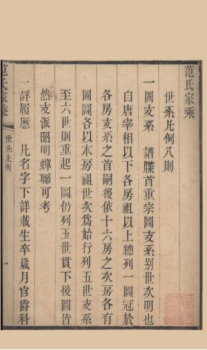 范氏家乘
世系凡例八則
一圖支系　譜牒首重宗圖支系别世次明也
自唐宰相以下各房祖以上總列一圖冠於
各房支系之首嗣後依十六房之次房各有
圖圖各以本房祖世次為始行列五世支系
至六世則重起一圖仍列五世貫下後圖皆
然支派昭明轉聯可考
一詳履歷　凡名字下詳載生卒歲月官爵科
范氏家乘
世系凡例